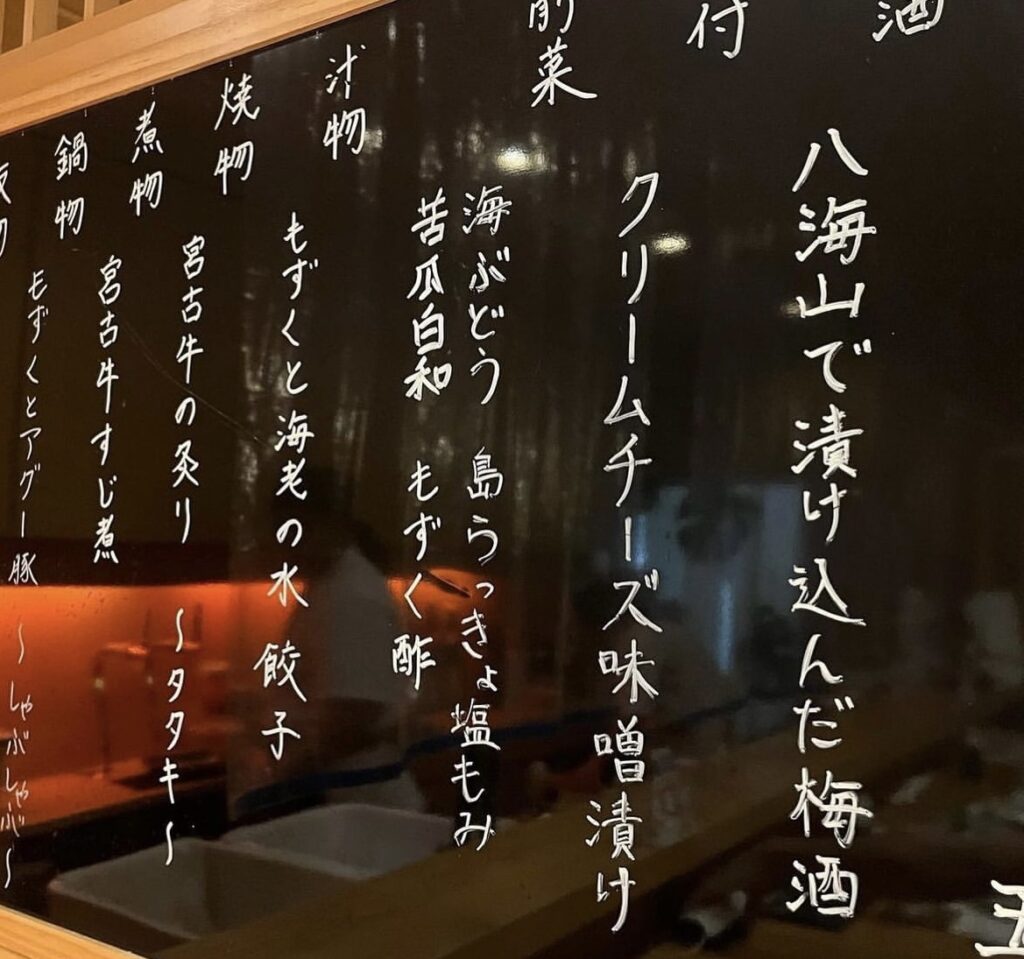 酒
八海山で漬け込んだ梅酒
付
クリームチーズ味噌漬け
前菜
海ぶどう 島らっきょ塩もみ
苦瓜白和 もずく酢
汁物
もずくと海老の水餃子
焼物
宮古牛の炙り 〜タタキ〜
煮物
宮古牛すじ煮
鍋物
もずくとアグー豚 〜しゃぶしゃぶ〜